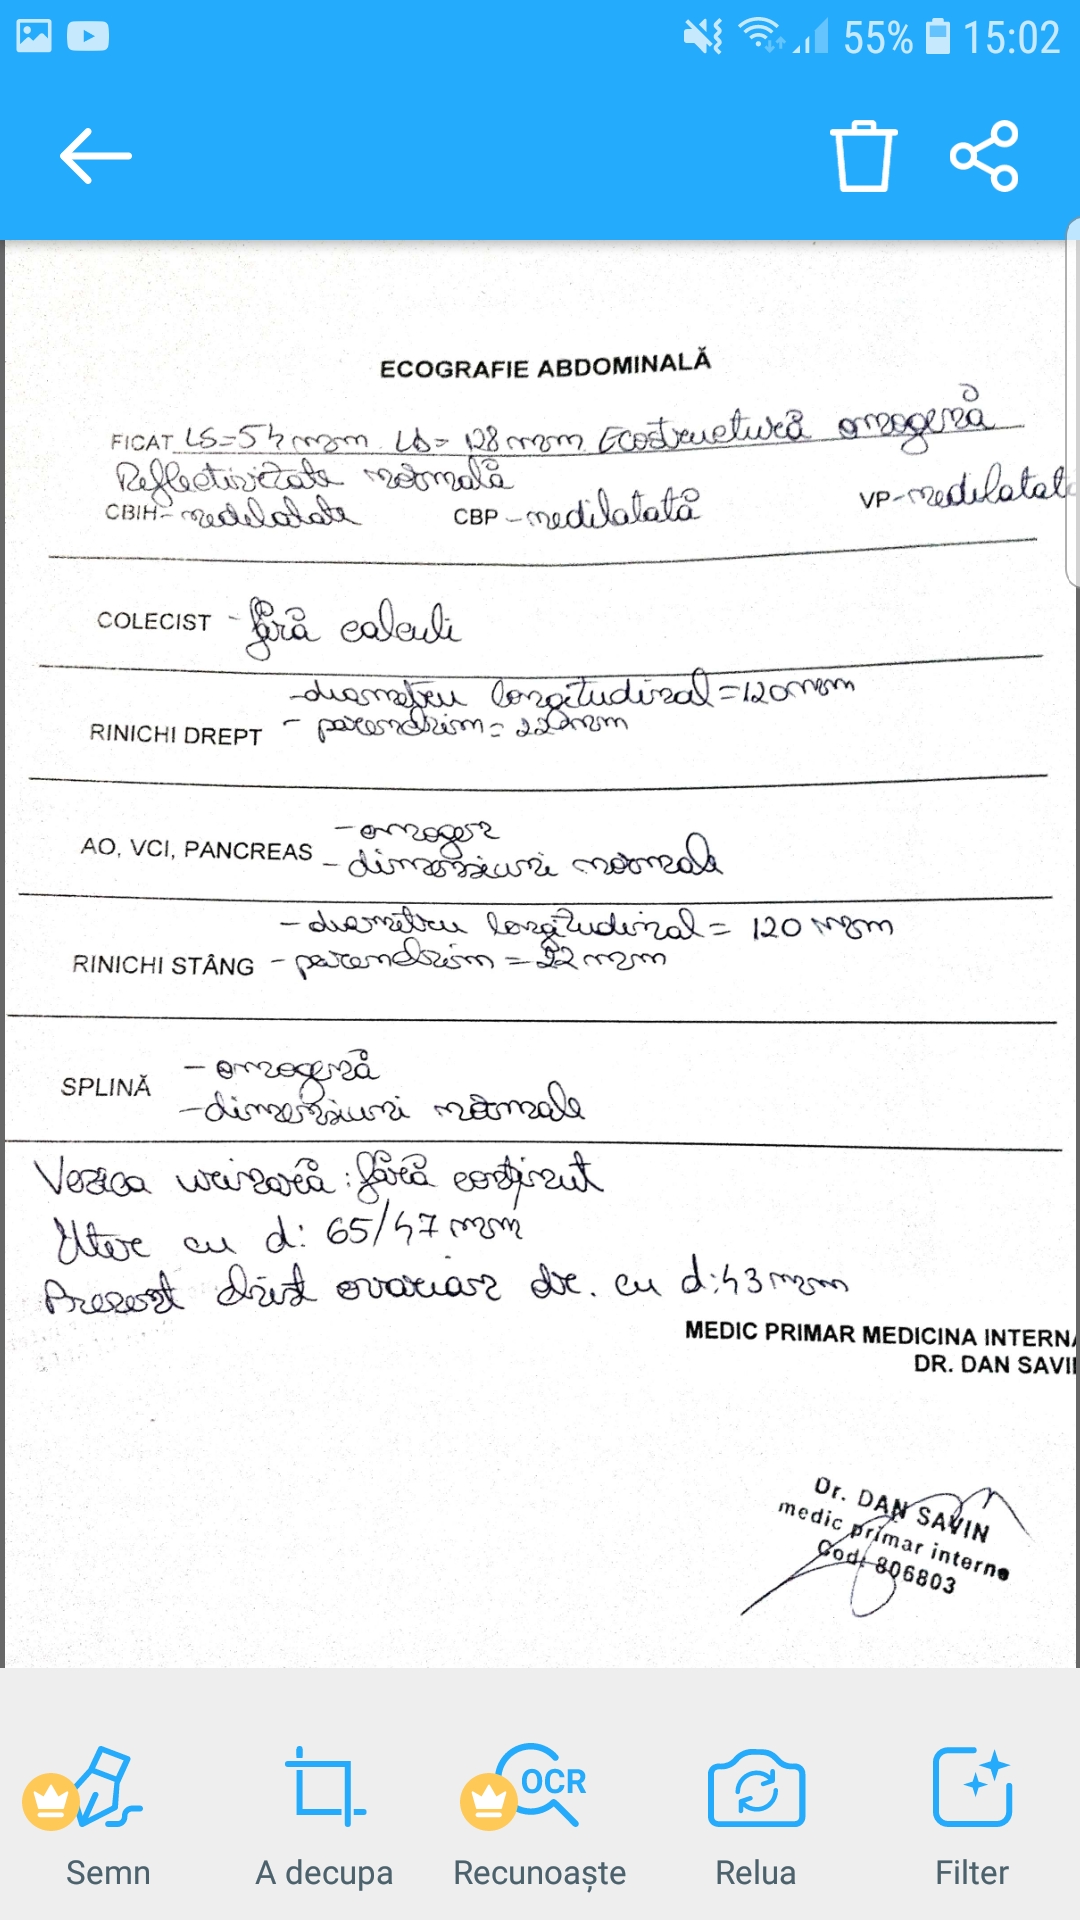 55% 15:02
ECOGRAFIE ABDOMINALĂ
FICAT LS=54mm. LD= 128mm. Ecostructură omogenă
Reflectivitate normală
CBIH- nedilatate CBP - nedilatată VP- nedilatată
COLECIST - fără calculi
- diametru longitudinal = 120mm
RINICHI DREPT - parenchim = 22mm
- omogen
AO, VCI, PANCREAS - dimensiuni normale
- diametru longitudinal = 120 mm
RINICHI STÂNG - parenchim = 22mm
- omogenă
SPLINĂ
- dimensiuni normale
Vezica urinară: fără conținut
Uter cu d: 65/47mm
Prezent chist ovarian dr. cu d: 43mm
MEDIC PRIMAR MEDICINA INTERNA
DR. DAN SAVI
Dr. DAN SAVIN
medic primar interne
Cod: 806803
OCR
Semn A decupa Recunoaște Relua Filter